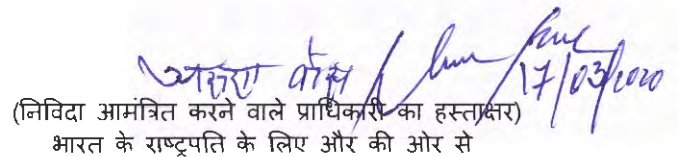 17/03/2020
(निविदा आमंत्रित करने वाले प्राधिकारी का हस्ताक्षर)
भारत के राष्ट्रपति के लिए और की ओर से